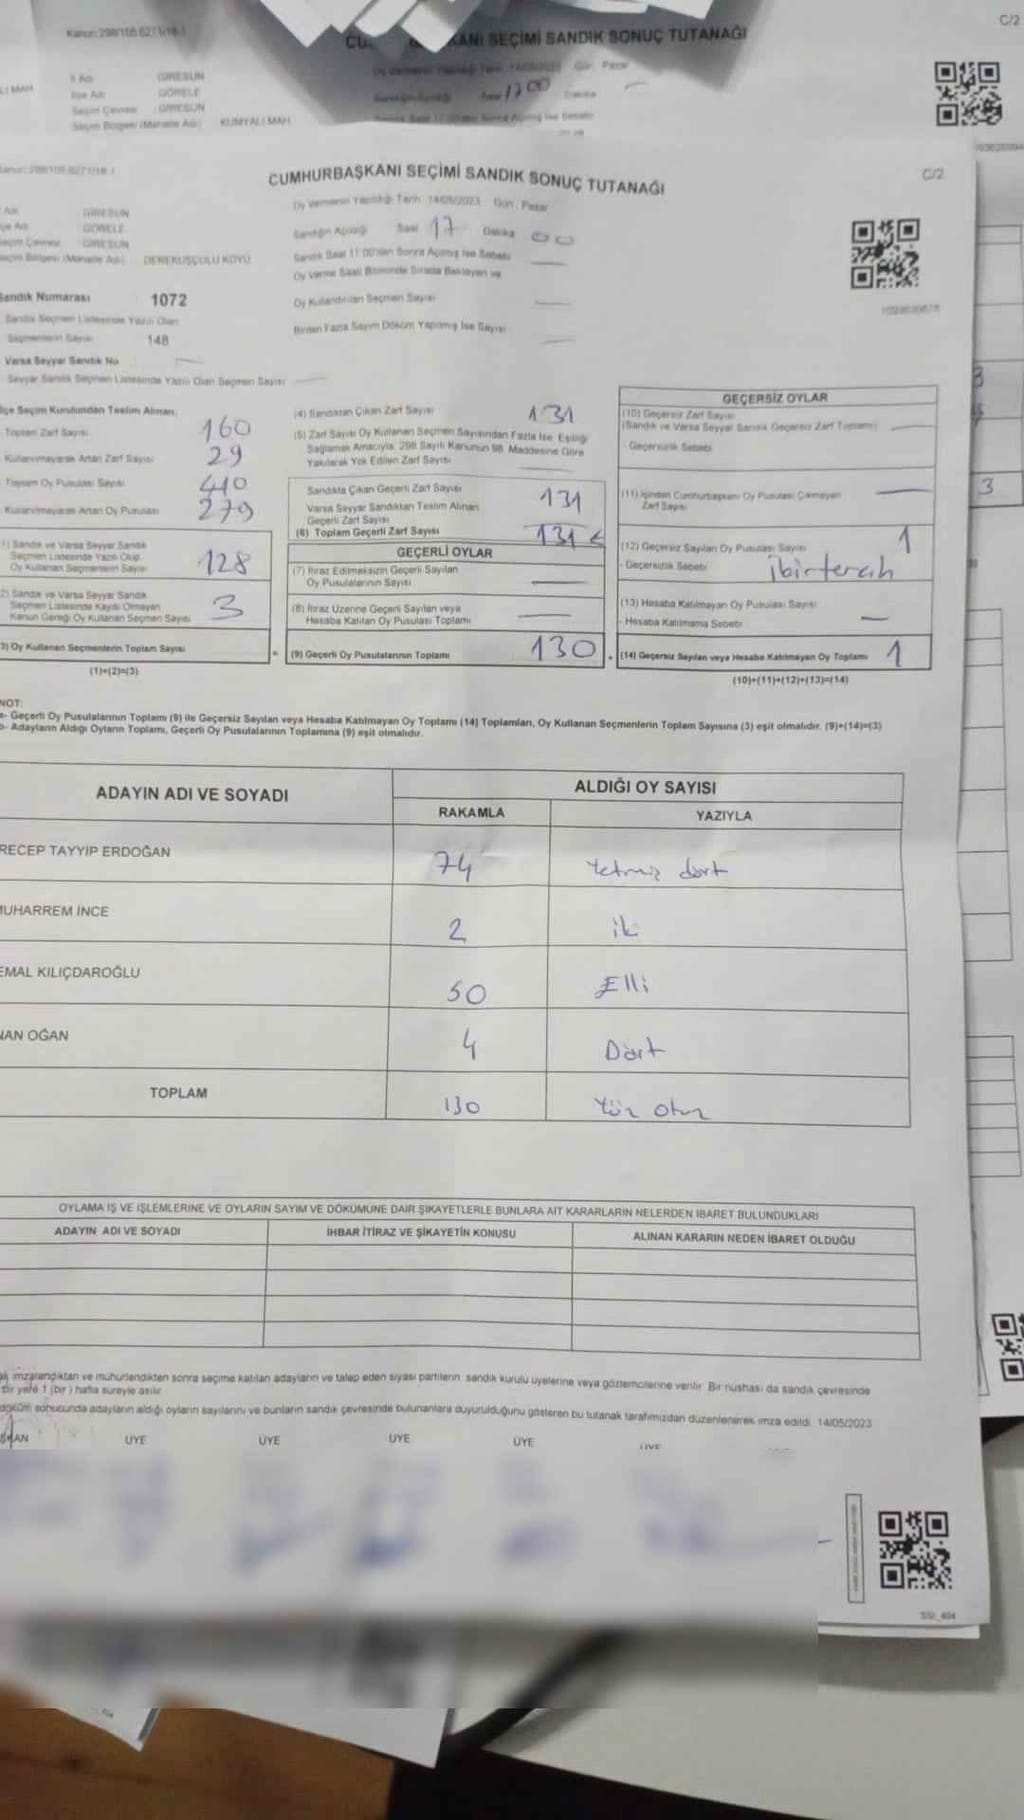 C/2
KANI SEÇİMİ SANDIK SONUÇ TUTANAĞI
GİRESUN
GÖRELE
GİRESUN
Seçim Bölgesi (Mahalle Adı) KUMYALI MAH.
1700
CUMHURBAŞKANI SEÇİMİ SANDIK SONUÇ TUTANAĞI
C/2
Oy Vermenin Yapıldığı Tarih 14/05/2023 Gün Pazar
GİRESUN
GÖRELE
GİRESUN
DEREKUŞÇULU KÖYÜ
Sandığın Açıldığı Saat 17 Dakika 00
Sandık Saat 17:00'den Sonra Açılmış İse Sebebi
Oy Verme Saati Bitiminde Sırada Bekleyen ve
Oy Kullandırılan Seçmen Sayısı
Birden Fazla Sayım Döküm Yapılmış İse Sayısı
Sandık Numarası 1072
Sandık Seçmen Listesinde Yazılı Olan
Seçmenlerin Sayısı 148
Varsa Seyyar Sandık No
Seyyar Sandık Seçmen Listesinde Yazılı Olan Seçmen Sayısı
İlçe Seçim Kurulundan Teslim Alınan;
Toplam Zarf Sayısı 160
Kullanılmayarak Artan Zarf Sayısı 29
Toplam Oy Pusulası Sayısı 410
Kullanılmayarak Artan Oy Pusulası 279
1) Sandık ve Varsa Seyyar Sandık
Seçmen Listesinde Yazılı Olup,
Oy Kullanan Seçmenlerin Sayısı 128
2) Sandık ve Varsa Seyyar Sandık
Seçmen Listesinde Kaydı Olmayan
Kanun Gereği Oy Kullanan Seçmen Sayısı 3
3) Oy Kullanan Seçmenlerin Toplam Sayısı
(1)+(2)=(3)
(4) Sandıktan Çıkan Zarf Sayısı 131
(5) Zarf Sayısı Oy Kullanan Seçmen Sayısından Fazla İse, Eşitliği
Sağlamak Amacıyla, 298 Sayılı Kanunun 98. Maddesine Göre
Yakılarak Yok Edilen Zarf Sayısı
Sandıkta Çıkan Geçerli Zarf Sayısı 131
Varsa Seyyar Sandıktan Teslim Alınan
Geçerli Zarf Sayısı
(6) Toplam Geçerli Zarf Sayısı 131
GEÇERLİ OYLAR
(7) İtiraz Edilmeksizin Geçerli Sayılan
Oy Pusulalarının Sayısı
(8) İtiraz Üzerine Geçerli Sayılan veya
Hesaba Katılan Oy Pusulası Toplamı
(9) Geçerli Oy Pusulalarının Toplamı 130
GEÇERSİZ OYLAR
(10) Geçersiz Zarf Sayısı
(Sandık ve Varsa Seyyar Sandık Geçersiz Zarf Toplamı)
Geçersizlik Sebebi
(11) İçinden Cumhurbaşkanı Oy Pusulası Çıkmayan
Zarf Sayısı
(12) Geçersiz Sayılan Oy Pusulası Sayısı 1
Geçersizlik Sebebi
(13) Hesaba Katılmayan Oy Pusulası Sayısı
Hesaba Katılmama Sebebi
(14) Geçersiz Sayılan veya Hesaba Katılmayan Oy Toplamı 1
(10)+(11)+(12)+(13)=(14)
NOT:
a- Geçerli Oy Pusulalarının Toplamı (9) ile Geçersiz Sayılan veya Hesaba Katılmayan Oy Toplamı (14) Toplamları, Oy Kullanan Seçmenlerin Toplam Sayısına (3) eşit olmalıdır. (9)+(14)=(3)
b- Adayların Aldığı Oyların Toplamı, Geçerli Oy Pusulalarının Toplamına (9) eşit olmalıdır.
ADAYIN ADI VE SOYADI
ALDIĞI OY SAYISI
RAKAMLA YAZIYLA
RECEP TAYYİP ERDOĞAN 74 Yetmiş dört
MUHARREM İNCE 2 iki
EMAL KILIÇDAROĞLU 50 Elli
NAN OĞAN 4 Dört
TOPLAM 130 Yüz otuz
OYLAMA İŞ VE İŞLEMLERİNE VE OYLARIN SAYIM VE DÖKÜMÜNE DAİR ŞİKAYETLERLE BUNLARA AİT KARARLARIN NELERDEN İBARET BULUNDUKLARI
ADAYIN ADI VE SOYADI İHBAR İTİRAZ VE ŞİKAYETİN KONUSU ALINAN KARARIN NEDEN İBARET OLDUĞU
imzalandıktan ve mühürlendikten sonra seçime katılan adayların ve talep eden siyasi partilerin sandık kurulu üyelerine veya gözlemcilerine verilir. Bir nüshası da sandık çevresinde
bir yere 1 (bir) hafta süreyle asılır.
döküm sonucunda adayların aldığı oyların sayılarını ve bunların sandık çevresinde bulunanlara duyurulduğunu gösteren bu tutanak tarafımızdan düzenlenerek imza edildi. 14/05/2023
ÜYE ÜYE ÜYE ÜYE ÜYE